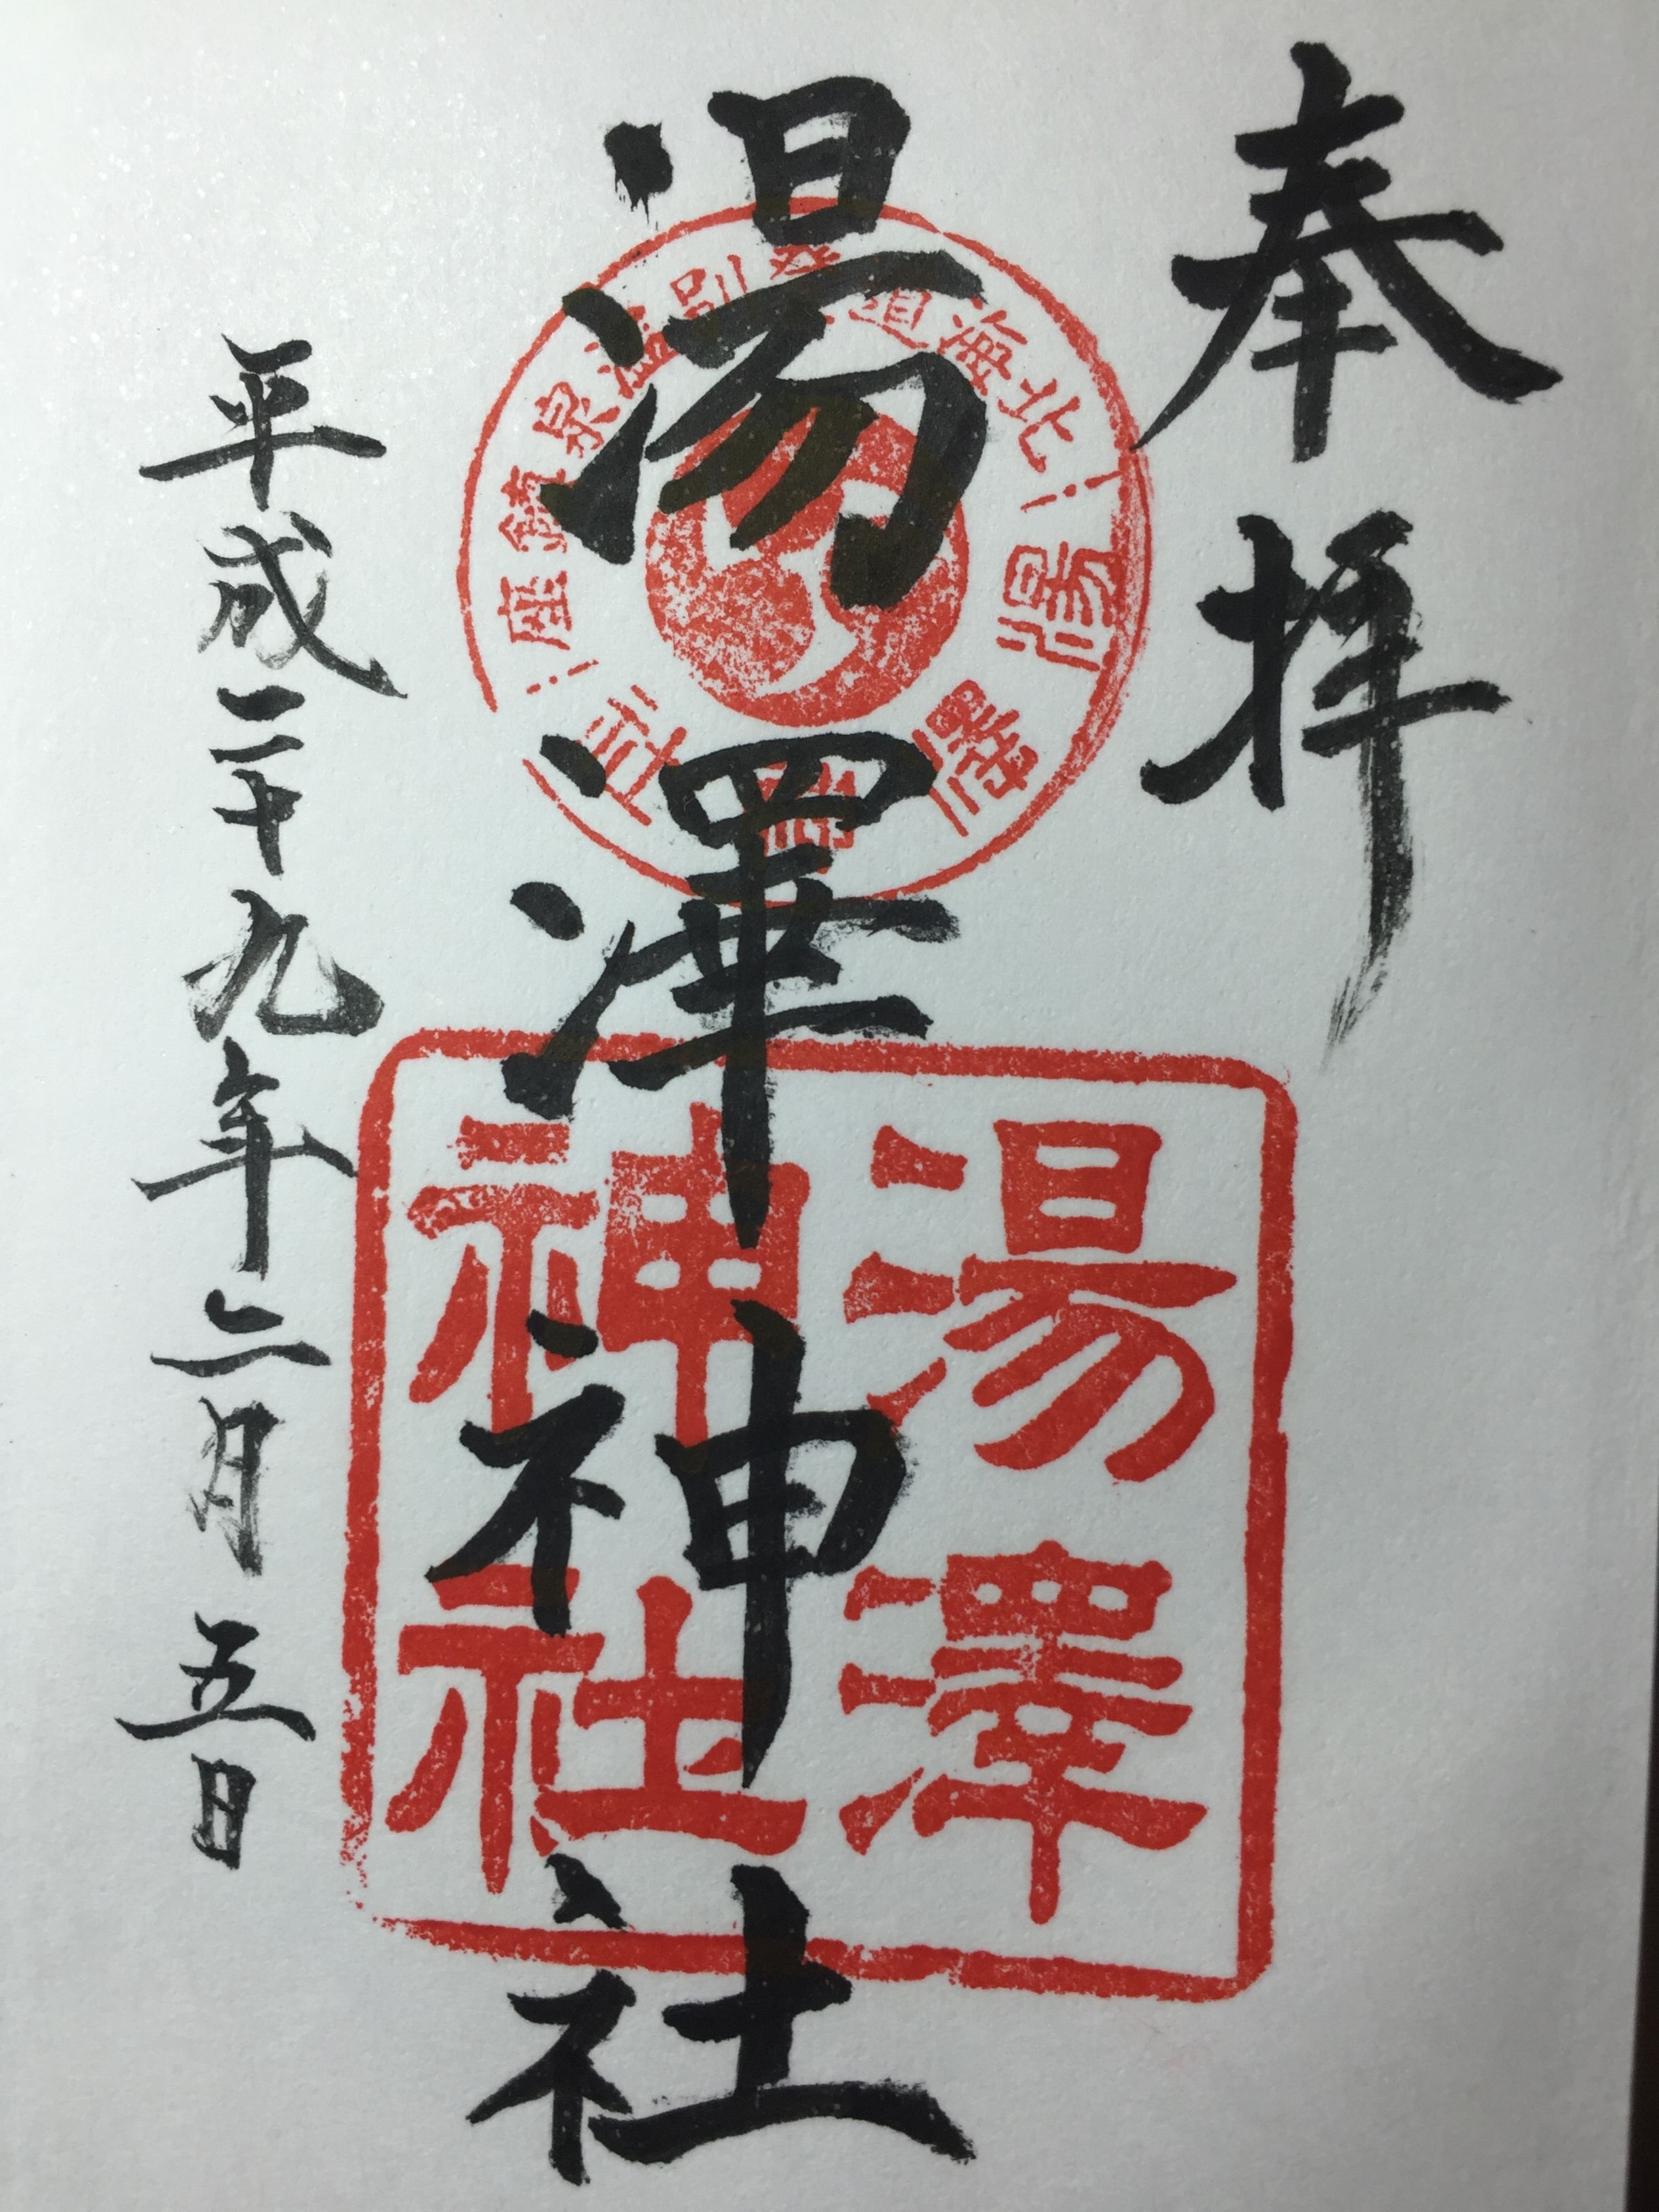 奉拝
湯澤神社
平成二十九年二月五日
北海道登別温泉鎮座
湯澤神社
湯澤
神社